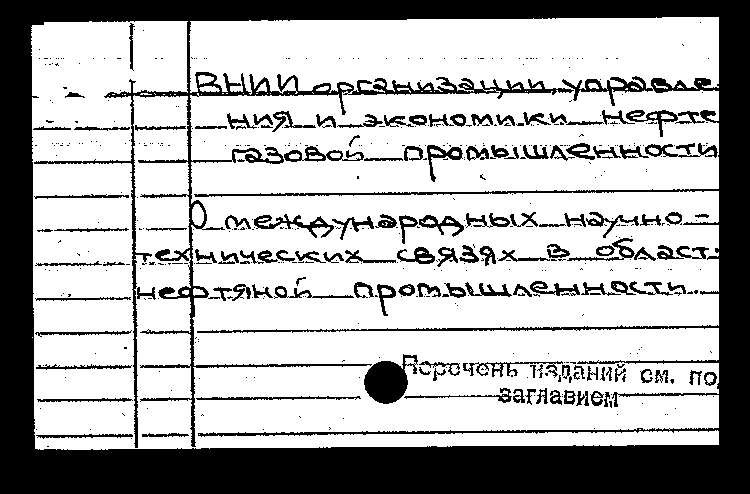 ВНИИ организации, управле
ния и экономики нефте
газовой промышленности
О международных научно-
технических связях в област
нефтяной промышленности.
Перечень изданий см. под
заглавием